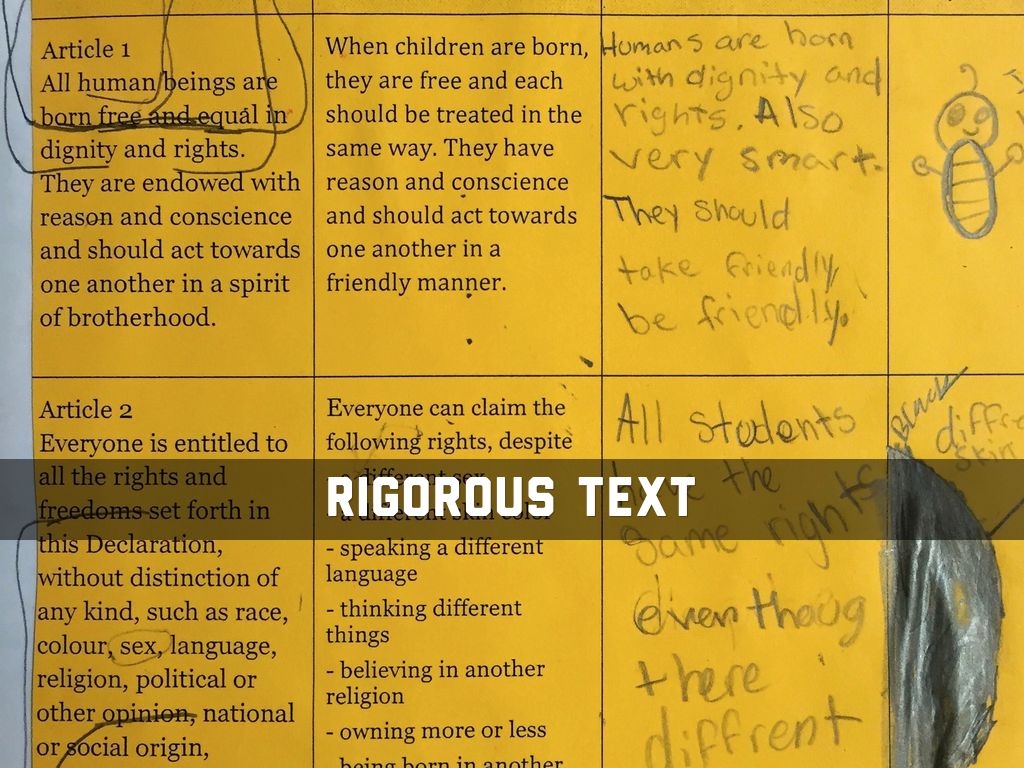 Article 1
All human beings are
born free and equal in
dignity and rights.
They are endowed with
reason and conscience
and should act towards
one another in a spirit
of brotherhood.
When children are born,
they are free and each
should be treated in the
same way. They have
reason and conscience
and should act towards
one another in a
friendly manner.
Humans are born
with dignity and
rights. Also
very smart.
They should
take friendly,
be friendly.
Article 2
Everyone is entitled to
all the rights and
freedoms set forth in
this Declaration,
without distinction of
any kind, such as race,
colour, sex, language,
religion, political or
other opinion, national
or social origin,
Everyone can claim the
following rights, despite
- a different sex
- a different skin color
- speaking a different
language
- thinking different
things
- believing in another
religion
- owning more or less
- being born in another
All students
have the
same rights
even thoug
there
diffrent
Black
skin
RIGOROUS TEXT